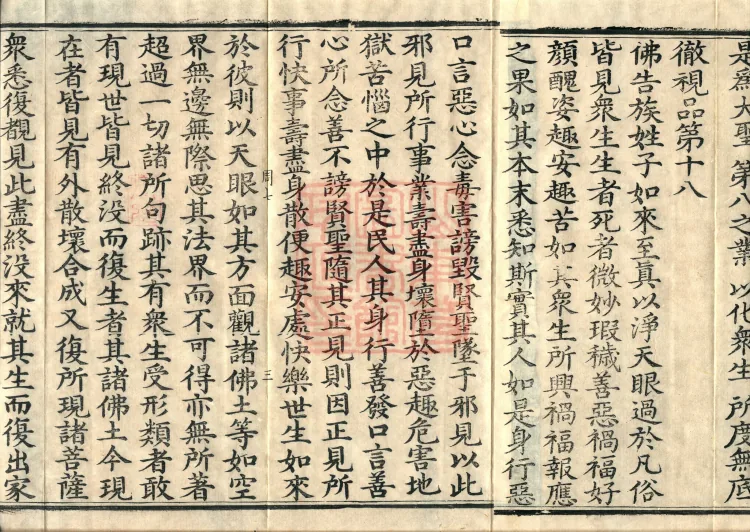 是為大聖第八之業以代衆生所度無底
徹視品第十八
佛告族姓子如來至真以淨天眼過於凡俗
皆見衆生生者死者微妙瑕穢善惡禍福好
顏醜姿趣安趣苦如其衆生所興禍福報應
之果如其本末悉知斯實其人如是身行惡
口言惡心念毒害謗毀賢聖墜于邪見以此
邪見所行事業壽盡身壞墮於惡趣危害地
獄苦惱之中於是民人其身行善發口言善
心所念善不謗賢聖隨其正見則因正見所
行快事壽盡身散便趣安處快樂世生如來
周七
三
於彼則以天眼如其方面觀諸佛土等如空
界無邊無際思其法界而不可得亦無所著
超過一切諸所句跡其有衆生受形類者敢
有現世皆見終没而復生者其諸佛土今現
在者皆見有外散壞合成又復所現諸菩薩
衆悉復覩見此盡終没來就其生而復出家